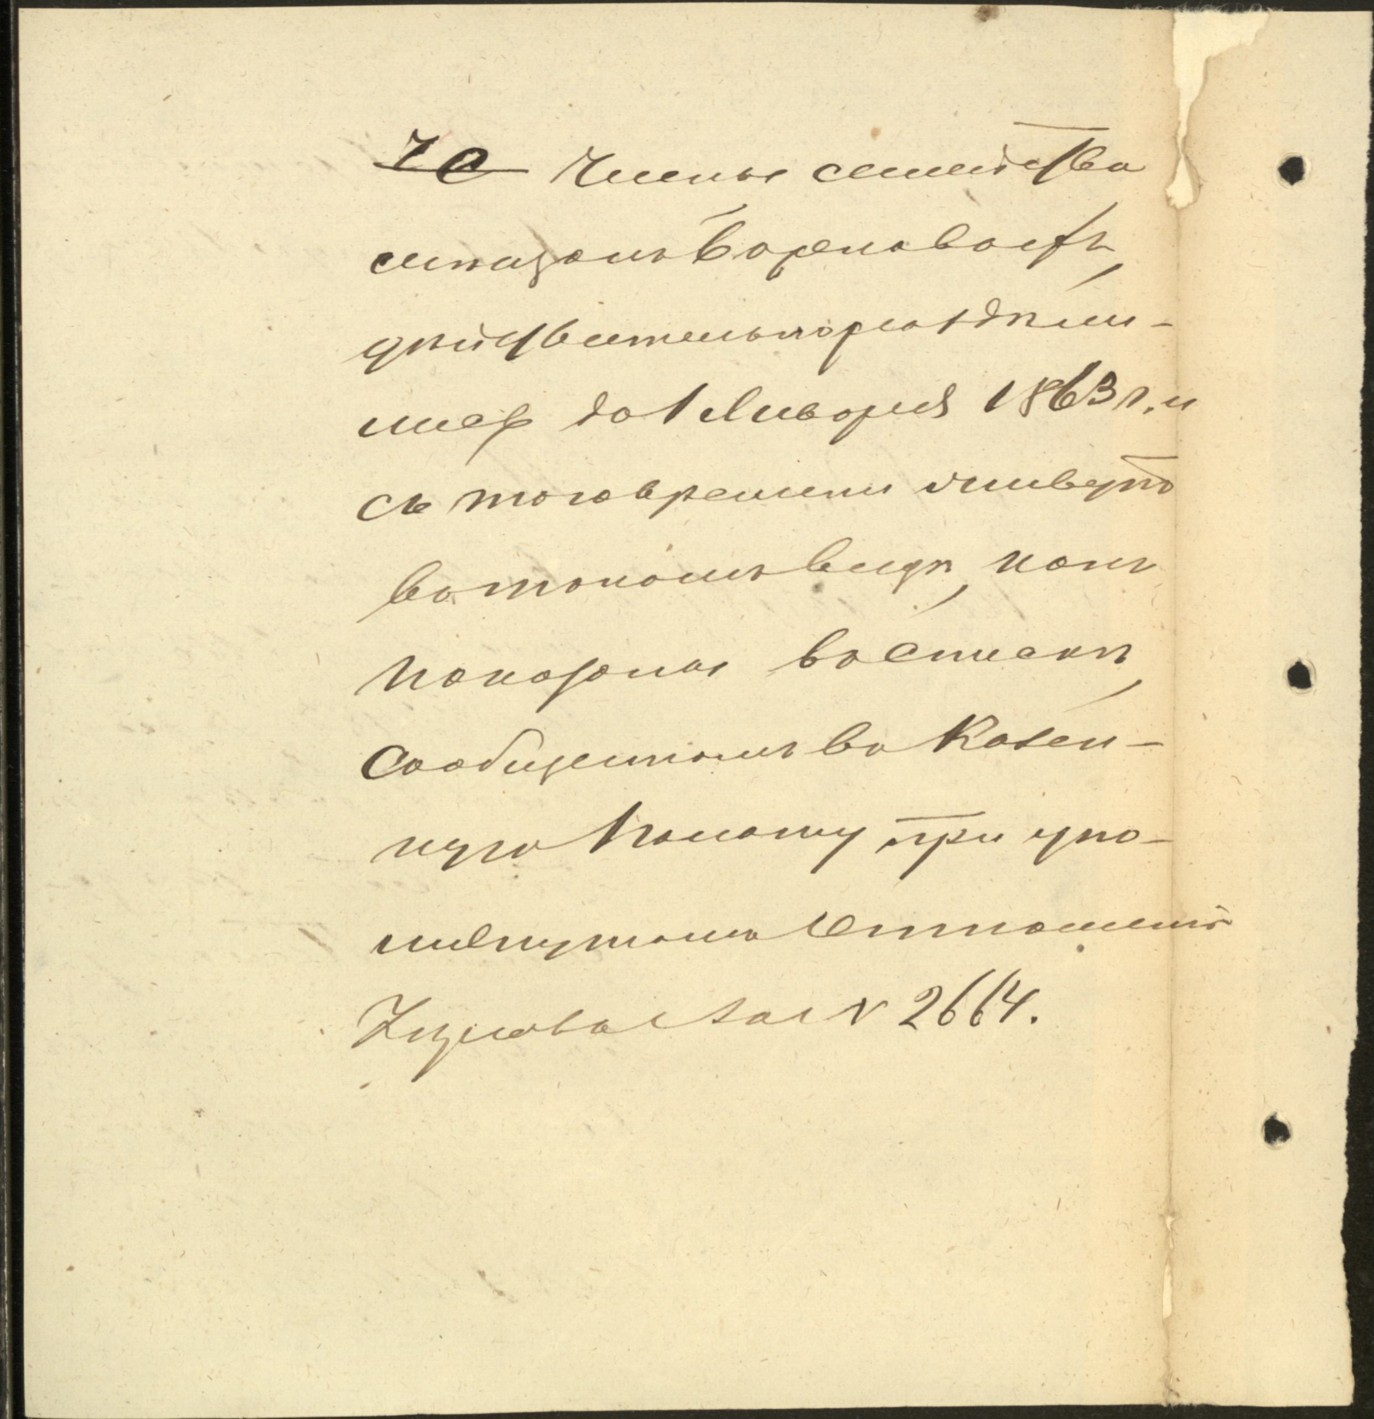 7е Члены семейства
мещанъ Баренавай,
дѣйствительно раздѣли-
лись до 1 Января 1863 г. и
съ того времени живутъ
въ такомъ видѣ, какъ
показаны въ спискѣ,
сообщенномъ въ Казен-
ную Палату при упо-
мянутомъ Отношеніи
за № 2664.